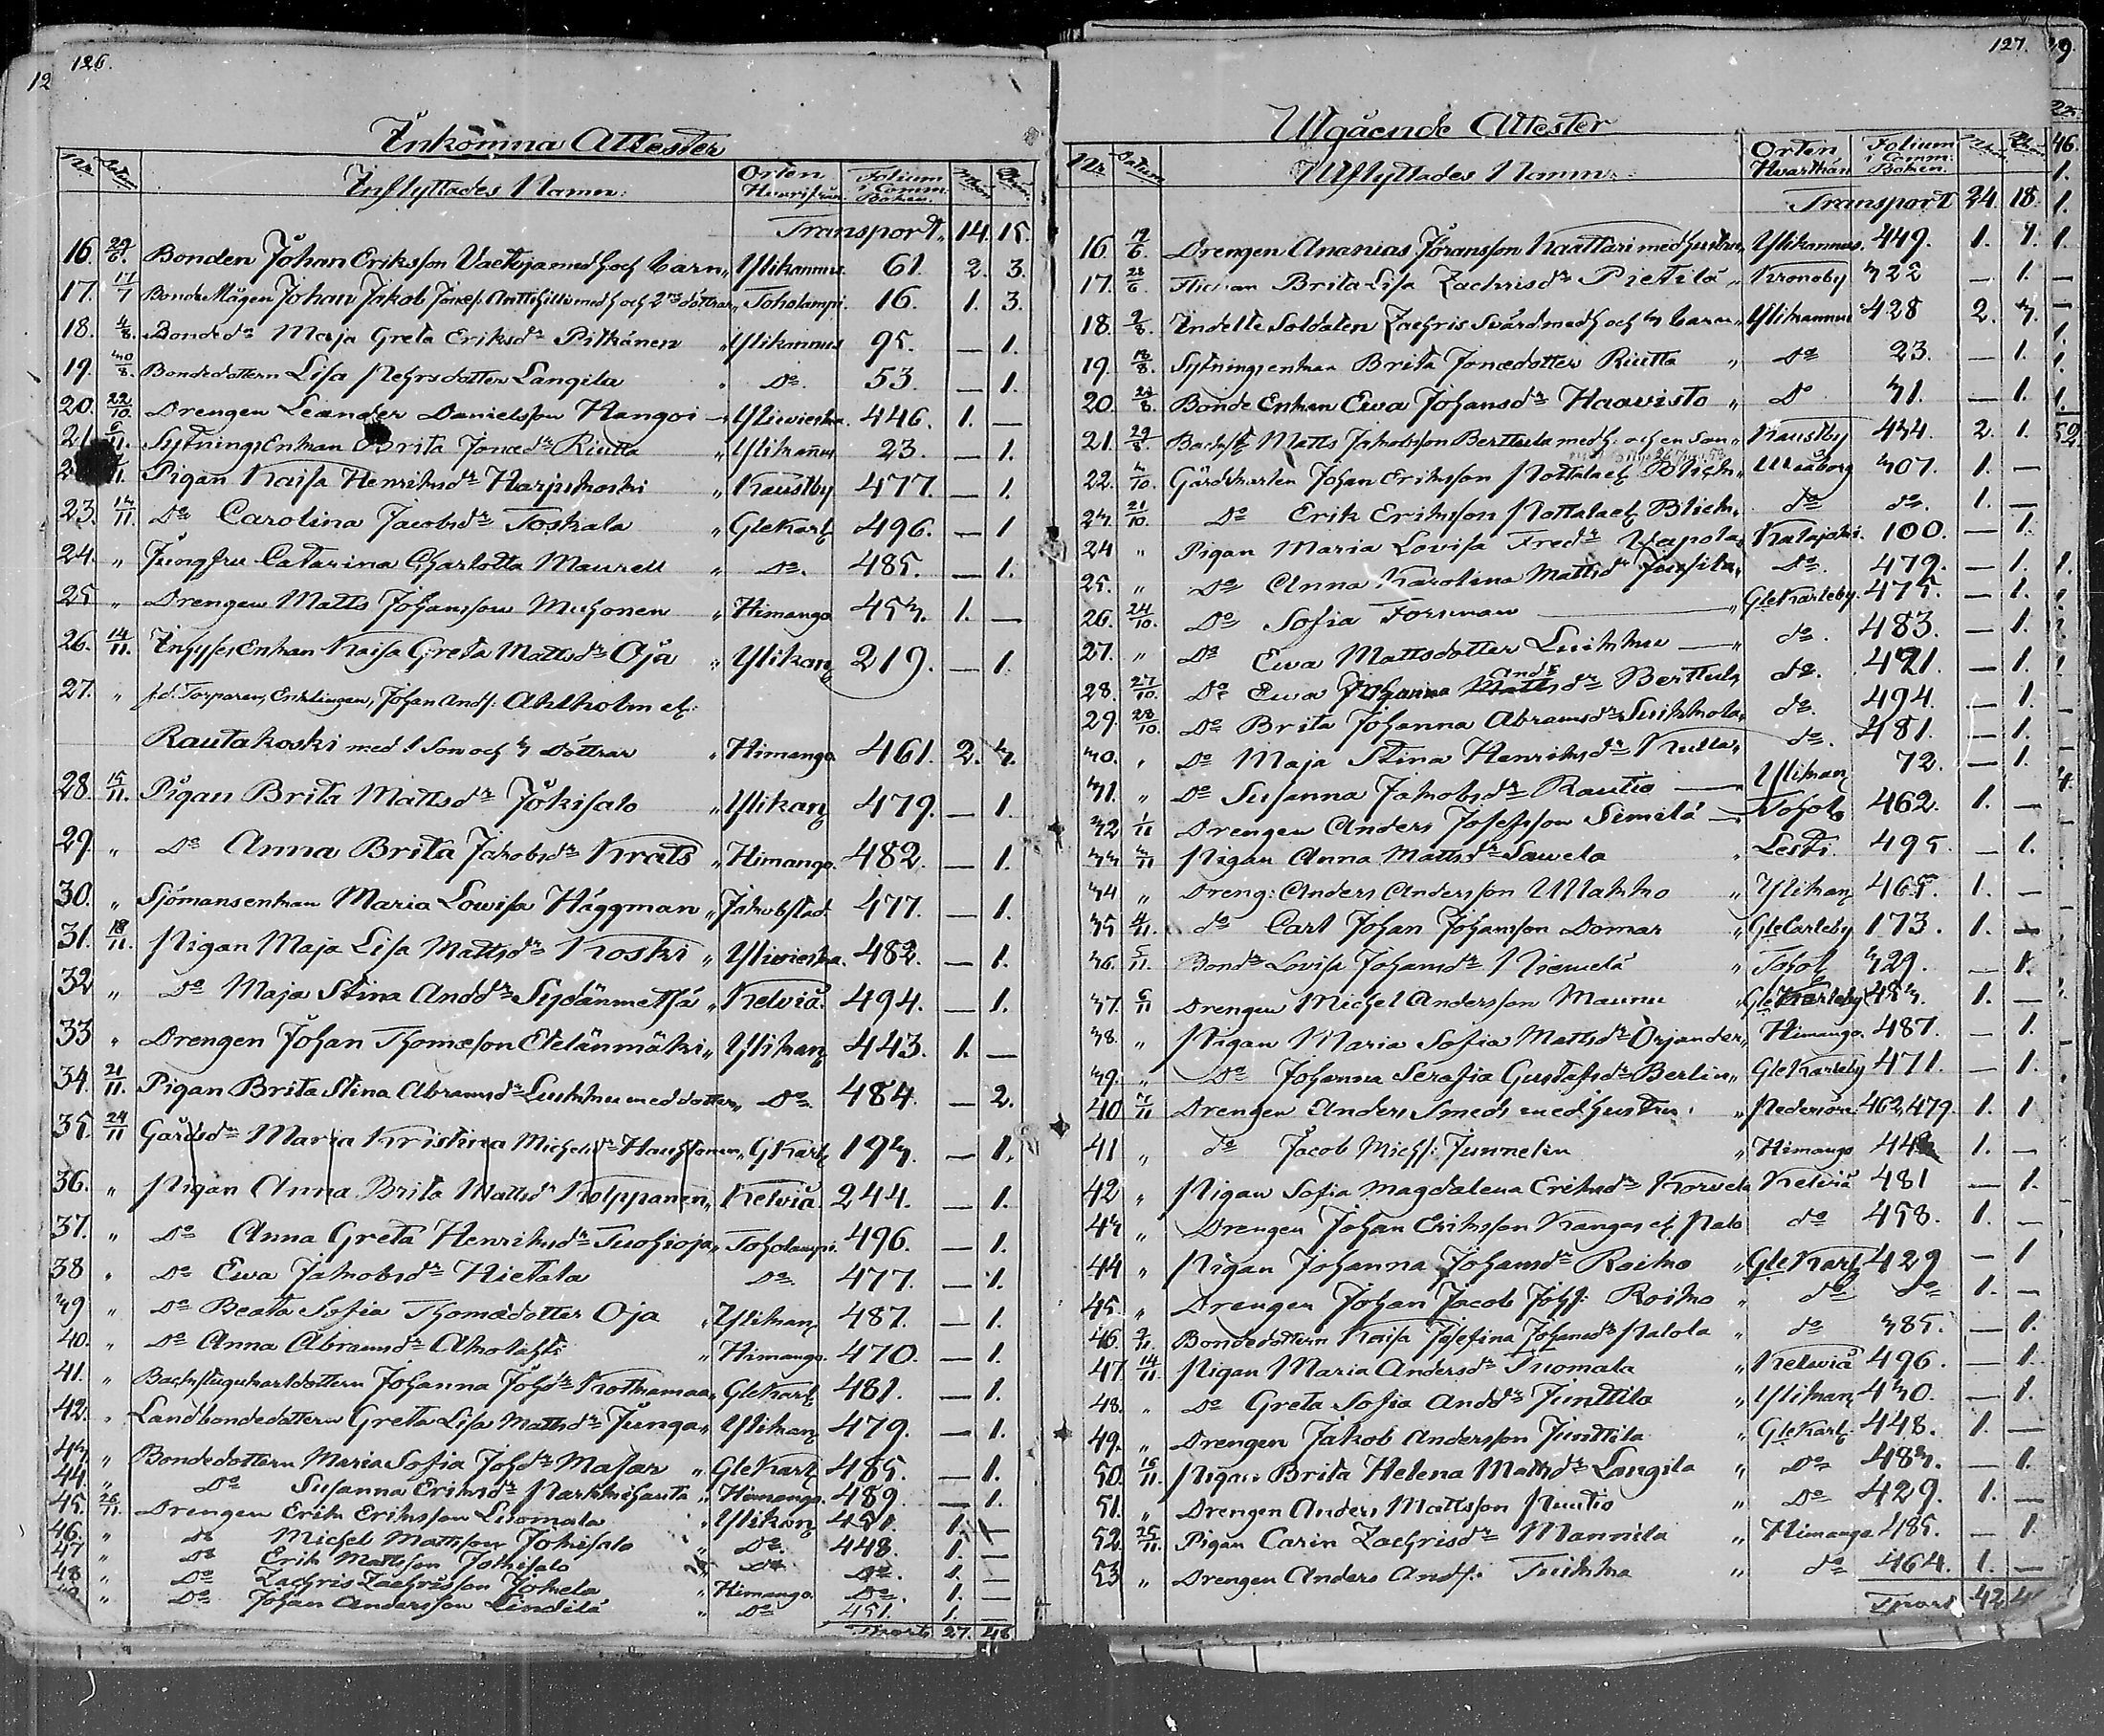 126.
Inkomna Attester
No Datum Inflyttades Namn: Orten Hvarifrån. Folium i Comm: Boken. Mkön Qkön
Transport, 14. 15.
16. 29/6. Bonden Johan Eriksson Vaetoja med h och barn „ Ylikannus. 61. 2. 3.
17. 17/7 BondeMågen Johan Jakob Jonæs. Anttihilli med h och 2ne döttrar „ Toholampi. 16. 1. 3.
18. 4/8. Bonded:r Maja Greta Eriksd:r Pitkänen „ Ylikannus 95. — 1.
19. 30/8. Bondedottern Lisa Mehrsdotter Langila „ Do. 53. — 1.
20. 22/10. Drengen Leander Danielsson Hangoi — Ylivieska. 446. 1. —
21. /11. SytningsEnkan Brita Jonæd:r Riutta „ Ylikanus 23. — 1.
2 /11. Pigan Kaisa Henriksd:r Harjukoski „ Kaustby 477. — 1.
23. 12/11. Do Carolina Jacobsd:r Toskala „ GleKarlb 496. — 1
24. „ Jungfru Catarina Charlotta Maurell „ Do. 485. — 1.
25 „ Drengen Matts Johansson Muhonen „ Himango 453. 1. —
26. 14/11. Inhyses Enkan Kaisa Greta Mattsd:r Oja „ Ylikan 219. — 1.
27. „ f.d. Torparen, Enklingen, Johan Ands. Ahlholm el:
Rautakoski med 1 Son och 3 Döttrar „ Himango 461. 2. 3.
28. 15/11. Pigan Brita Mattsd:r Jokisalo „ Ylikan 479. — 1.
29. „ Do Anna Brita Jakobsd:r Krats „ Himango. 482. — 1.
30. „ Sjömansenkan Maria Lowisa Häggman „ Jakobstad. 477. — 1.
31. 18/11. Pigan Maja Lisa Mattsd:r Koski „ Ylivieska. 482. — 1.
32 „ Do Maja Stina Andd:r Sydänmetsä „ Kelviå 494. — 1.
33 „ Drengen Johan Thomæson Etelänmäki „ Ylikan 443. 1. —
34. 21/11. Pigan Brita Stina Abramsd:r Luikku med dotter „ Do. 484. — 2.
35. 24/11 Gårdsd:r Maria Kristina Michelsd:r Hauhtonen „ GKarlb 193. — 1.
36. „ Pigan Anna Brita Mattsd:r Kolppanen „ Kelviå. 244. — 1.
37. „ Do Anna Greta Henriksd:r Tuohioja „ Toholampi. 496. — 1.
38 „ Do Ewa Jakobsd:r Hietala Do. 477. — 1.
39 „ Do Beata Sofia Thomædotter Oja „ Ylikan 487. — 1.
40. „ Do Anna Abramsd:r Aholahti „ Himango. 470. — 1.
41. „ Backstugukarldottern Johanna Johsd:r Kotkamaa „ GleKarlb 481. — 1.
42. „ Landbondedottern Greta Lisa Mattsd:r Junga „ Ylikan 479. — 1.
43 „ Bondedottern Maria Sofia Johd:r Masar „ GleKarlb 485. — 1.
44. „ Do Susanna Eriksd:r Parkkihauta „ Himango. 489. — 1.
45. 26/11. Drengen Erik Eriksson Luomala „ Ylikan 451. 1. —
46. „ do Michel Mattsson Jokisalo „ Do. 448. 1. —
47 „ Do Erik Mattsson Jokisalo Do. Do. 1. —
48 „ Do Zachris Zachrisson Jokela „ Himango. Do. 1. —
49. „ Do Johan Andersson Lindilä „ Do 451. 1. —
Transp. 27. 48.
127.
Utgående Attester
No Datum Utflyttades Namn. Orten Hvarthän Folium i Comm: Boken. Mkön Qkön
Transport 24. 18.
16. 19/6. Drengen Ananias Jöransson Kaattari med hustru „ Ylikannus. 449. 1. 1.
17. 28/6. Flickan Brita Lisa Zachrisd:r Pietilä „ Kronoby 322 — 1.
18. 2/8. Indelte Soldaten Zachris Svärd med h och 3 barn „ Ylikannus 428 2. 3.
19. 18/8. Sytningsenkan Brita Jonædotter Riutta „ Do 23. — 1.
20. 28/8. Bonde Enkan Ewa Johansd:r Haavisto „ Do 31. — 1.
21. 29/8. Backst Matts Jakobsson Berttula med h. och en Son „ Kaustby 434. 2. 1.
22. 3/10. Gårdskarlen Johan Eriksson Nottala el Blick „ Uleåborg 307. 1. —
23. 21/10. Do Erik Eriksson Nottala el Blick „ do do. 1. —
24 „ Pigan Maria Lovisa Fredd:r Wapola „ Kalajoki. 100. — 1.
25. „ Do Anna Karolina Mattsd:r Jussila „ Do. 479. — 1.
26. 24/10. Do Sofia Forsman — „ GleKarleby. 475. — 1.
27. „ Do Ewa Mattsdotter Luikku — „ do. 483. — 1.
28. 27/10. Do Ewa Johanna Andd:r Berttula do. 421. — 1.
29. 28/10. Do Brita Johanna Abramsd:r Luikkola „ do. 494. — 1.
30. „ Do Maja Stina Henriksd:r Kulla „ do. 481. — 1.
31. „ Do Susanna Jakobsd:r Rautio — Ylikan 72. — 1.
32 1/11 Drengen Anders Josefsson Similä — Tohol 462. 1. —
33 3/11 Pigan Anna Mattsd:r Sawela „ Lesti. 495. — 1.
34 „ Dreng: Anders Andersson Ullakko „ Ylikan 465. 1. —
35 4/11. do Carl Johan Johansson Domar „ GleCarleby 173. 1. —
36. 5/11. Bond:r Lovisa Johansd:r Niemelä „ Tohol 329. — 1.
37. 6/11 Drengen Michel Andersson Maunu „ GleKarleby 483. 1. —
38. „ Pigan Maria Sofia Mattsd:r Orjander „ Himango. 487. — 1.
39. „ Do Johanna Serafia Gustafsd:r Berlin „ GleKarleby 471. — 1.
40 7/11 Drengen Anders Smeds med hustru „ Pedersöre 462,479. 1. 1
41 „ do Jacob Michs: Junnelin „ Himango 44 1. —
42 „ Pigan Sofia Magdalena Eriksd:r Korvela Kelviå 481 — 1.
43 „ Drengen Johan Eriksson Kangas el Palo do 458. 1. —
44 „ Pigan Johanna Johansd:r Roiko „ GleKarlb 429 — 1
45. „ Drengen Johan Jacob Johs: Roiko „ do do 1. —
46. 9/11. Bondedottern Kaisa Josefina Johansd:r Palola „ do 385. — 1.
47. 14/11. Pigan Maria Andersd:r Tuomala „ Kelwiå 496. — 1.
48. „ Do Greta Sofia Andd:r Junttila „ Ylikan 430. — 1.
49. „ Drengen Jakob Andersson Junttila „ GleKarlb. 448. 1. —
50. 16/11. Pigan Brita Helena Mattsd:r Langila „ Do 483. — 1.
51. „ Drengen Anders Mattsson Ruutio „ Do 429. 1. —
52. 25/11. Pigan Carin Zachrisd:r Mannila „ Himango. 485. — 1.
53 „ Drengen Anders Ands: Tuikka „ do 464. 1. —
Transp 42